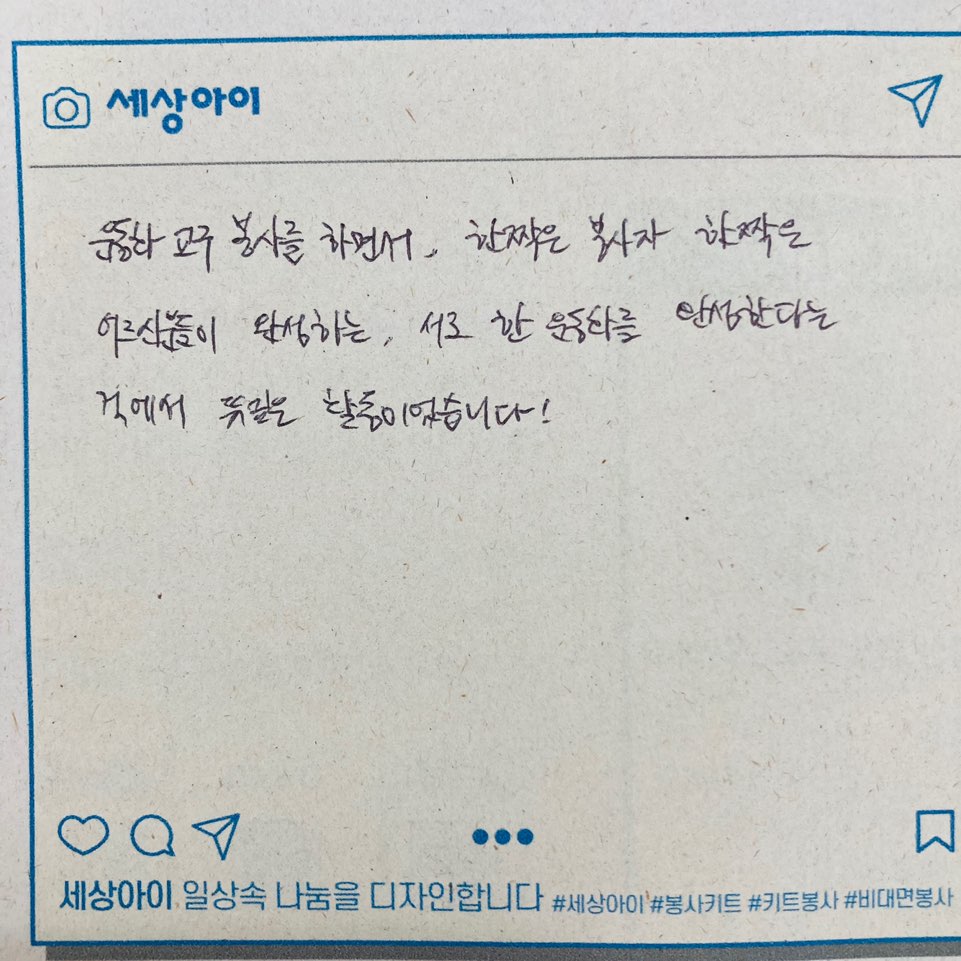 세상아이
운동화 고구 봉사를 하면서, 한짝은 봉사자 한짝은
어르신분들이 완성하는, 서로 한 운동화를 완성한다는
것에서 뜻깊은 활동이었습니다!
세상아이 일상속 나눔을 디자인합니다 #세상아이 #봉사키트 #키트봉사 #비대면봉사